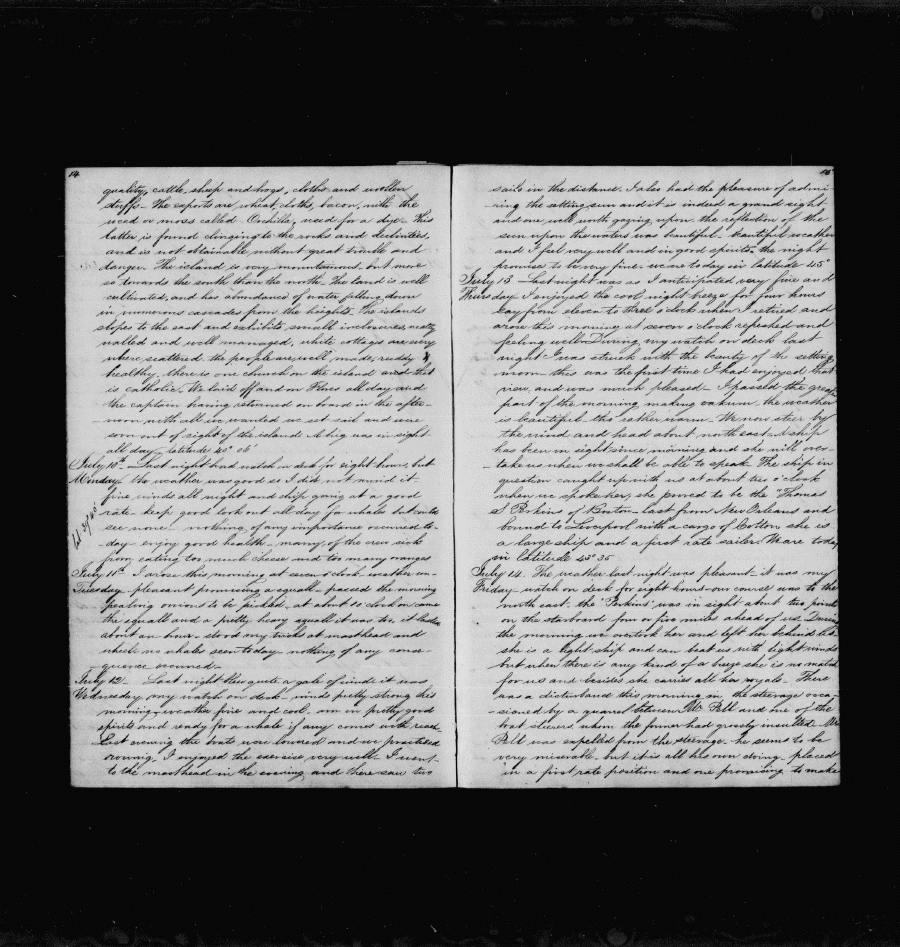 14
quality, cattle, sheep and hogs, cloths and woollen
stuffs - The exports are wheat, cloths, bacon, with the
weed or moss called Orchilla, used for a dye - This
latter is found clinging to the rocks and declivities,
and is not obtainable without great trouble and
danger. The island is very mountainous, but more
so towards the south than the north. The land is well
cultivated, and has abundance of water falling down
in numerous cascades from the heights. The islands
slopes to the east and exhibits small inclosures, neatly
walled and well managed, white cottages are every
where scattered the people are well made, ruddy &
healthy, there is one church on the island and that
is catholic. We laid off and on Flores all day and
the captain having returned on board in the after-
noon with all we wanted we set sail and were
soon out of sight of the island. A big was in sight
all day - latitude
July 10th - Last night had watch on deck for eight hours, but
Monday the weather was good so I did not mind it
fine winds all night and ship going at a good
rate - keep good look out all day for whale but
see none - nothing of any importance occurred to-
day - enjoy good health - many of the crew sick
from eating too much cheese and too many oranges
July 11th I arose this morning at seven o'clock weather un-
Tuesday pleasant promising a squall - passed the morning
pealing onions to be pickled - at about 10 o'clock on came
the squall and a pretty heavy squall it was too, it lasted
about an hour - stood my tricks at masthead and
wheel no whales seen today nothing of any conse-
quence occurred -
July 12 - Last night blew quite a gale of wind it was
Wednesday my watch on deck - winds pretty strong this
morning - weather fine and cool, am in pretty good
spirits and ready for a whale if any comes with reach
Last evening the boats were lowered and we practised
rowing I enjoyed the exercise very well. I went
to the masthead in the evening and there saw two
15
sails in the distance. I also had the pleasure of admi-
-ring the setting sun and it is indeed a grand sight
and one well worth gazing upon the reflection of the
sun upon the waters was beautiful - beautiful weather
and I feel very well and in good spirits the night
promises to be very fine. we are today in latitude 45°
July 13 - Last night was as I anticipated very fine and
Thursday I enjoyed the cool night breeze for four hours
say from eleven to three o'clock when I retired and
arose this morning at seven o'clock refreshed and
feeling well - During my watch on deck last
night I was struck with the beauty of the setting
moon - this was the first time I had enjoyed that
view and was much pleased - I passed the great
part of the morning making oakum. the weather
is beautiful - tho' rather warm - We now steer by
the wind and head about north east - A ship
has been in sight since morning and she will over-
- take us when we shall be able to speak. The ship in
question caught up with us at about two o'clock
when we spoke her, she proved to be the "Thomas
Perkins of Boston - last from New Orleans and
bound to Liverpool with a cargo of Cotton, she is
a large ship and a first rate sailer. We are today
in latitude 45° 35
July 14. The weather last night was pleasant - it was my
Friday - watch on deck for eight hours - our course was to the
north east. the 'Perkins' was in sight about two points
on the starboard four or five miles ahead of us. During
the morning we overtook her and left her behind
she is a light ship and can beat us with light winds
but when there is any kind of a breeze she is no match
for us and besides she carries all her royals - There
was a disturbance this morning in the steerage occa-
sioned by a quarrel between Mr. Pell and one of the
boat steerers whom the former had grossly insulted. Mr.
Pell was expelled from the steerage - he seems to be
very miserable, but it is all his own doing - placed
in a first rate position and one promising to make